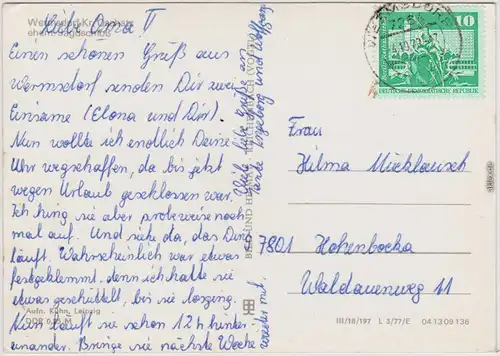 Wermsdorf Kr. Oschatz
ehem. Jagdschloß
Liebe Oma!
Einen schönen Gruß aus
Wermsdorf senden Dir zwei
Einsame (Elona und Dirk).
Nun wollte ich endlich Deine
Uhr wegschaffen, da bis jetzt
wegen Urlaub geschlossen war.
Ich hing sie aber probeweise noch
mal auf. Und siehe da, das Ding
läuft. Wahrscheinlich war etwas
festgeklemmt, denn ich hatte sie
etwas geschüttelt, bis sie losging.
Nun läuft sie schon 12 h hinter-
einander. Bringe sie nächste Woche
wieder mit.
Viele liebe Grüße an
Tante Ingeborg und Wolfgang
Aufn. Kühn, Leipzig
DDR 0,25 M
BILD UND HEIMAT REICHENBACH (VOGTL)
10
DEUTSCHE DEMOKRATISCHE REPUBLIK
Frau
Hilma Micklausch
7801 Hohenbocka
Waldauenweg 11
III/18/197 L 3/77/E 04 13 09 136